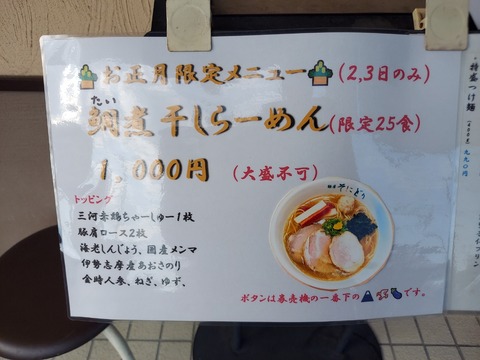 お正月限定メニュー (2,3日のみ)
たい
鯛煮干しらーめん(限定25食)
1,000円 (大盛不可)
トッピング
三河赤鶏ちゃーしゅー1枚
豚肩ロース2枚
海老しんじょう、国産メンマ
伊勢志摩産あおさのり
金時人参、ねぎ、ゆず、
ボタンは券売機の一番下の🗻🦅🍆です。
特盛つけ麺